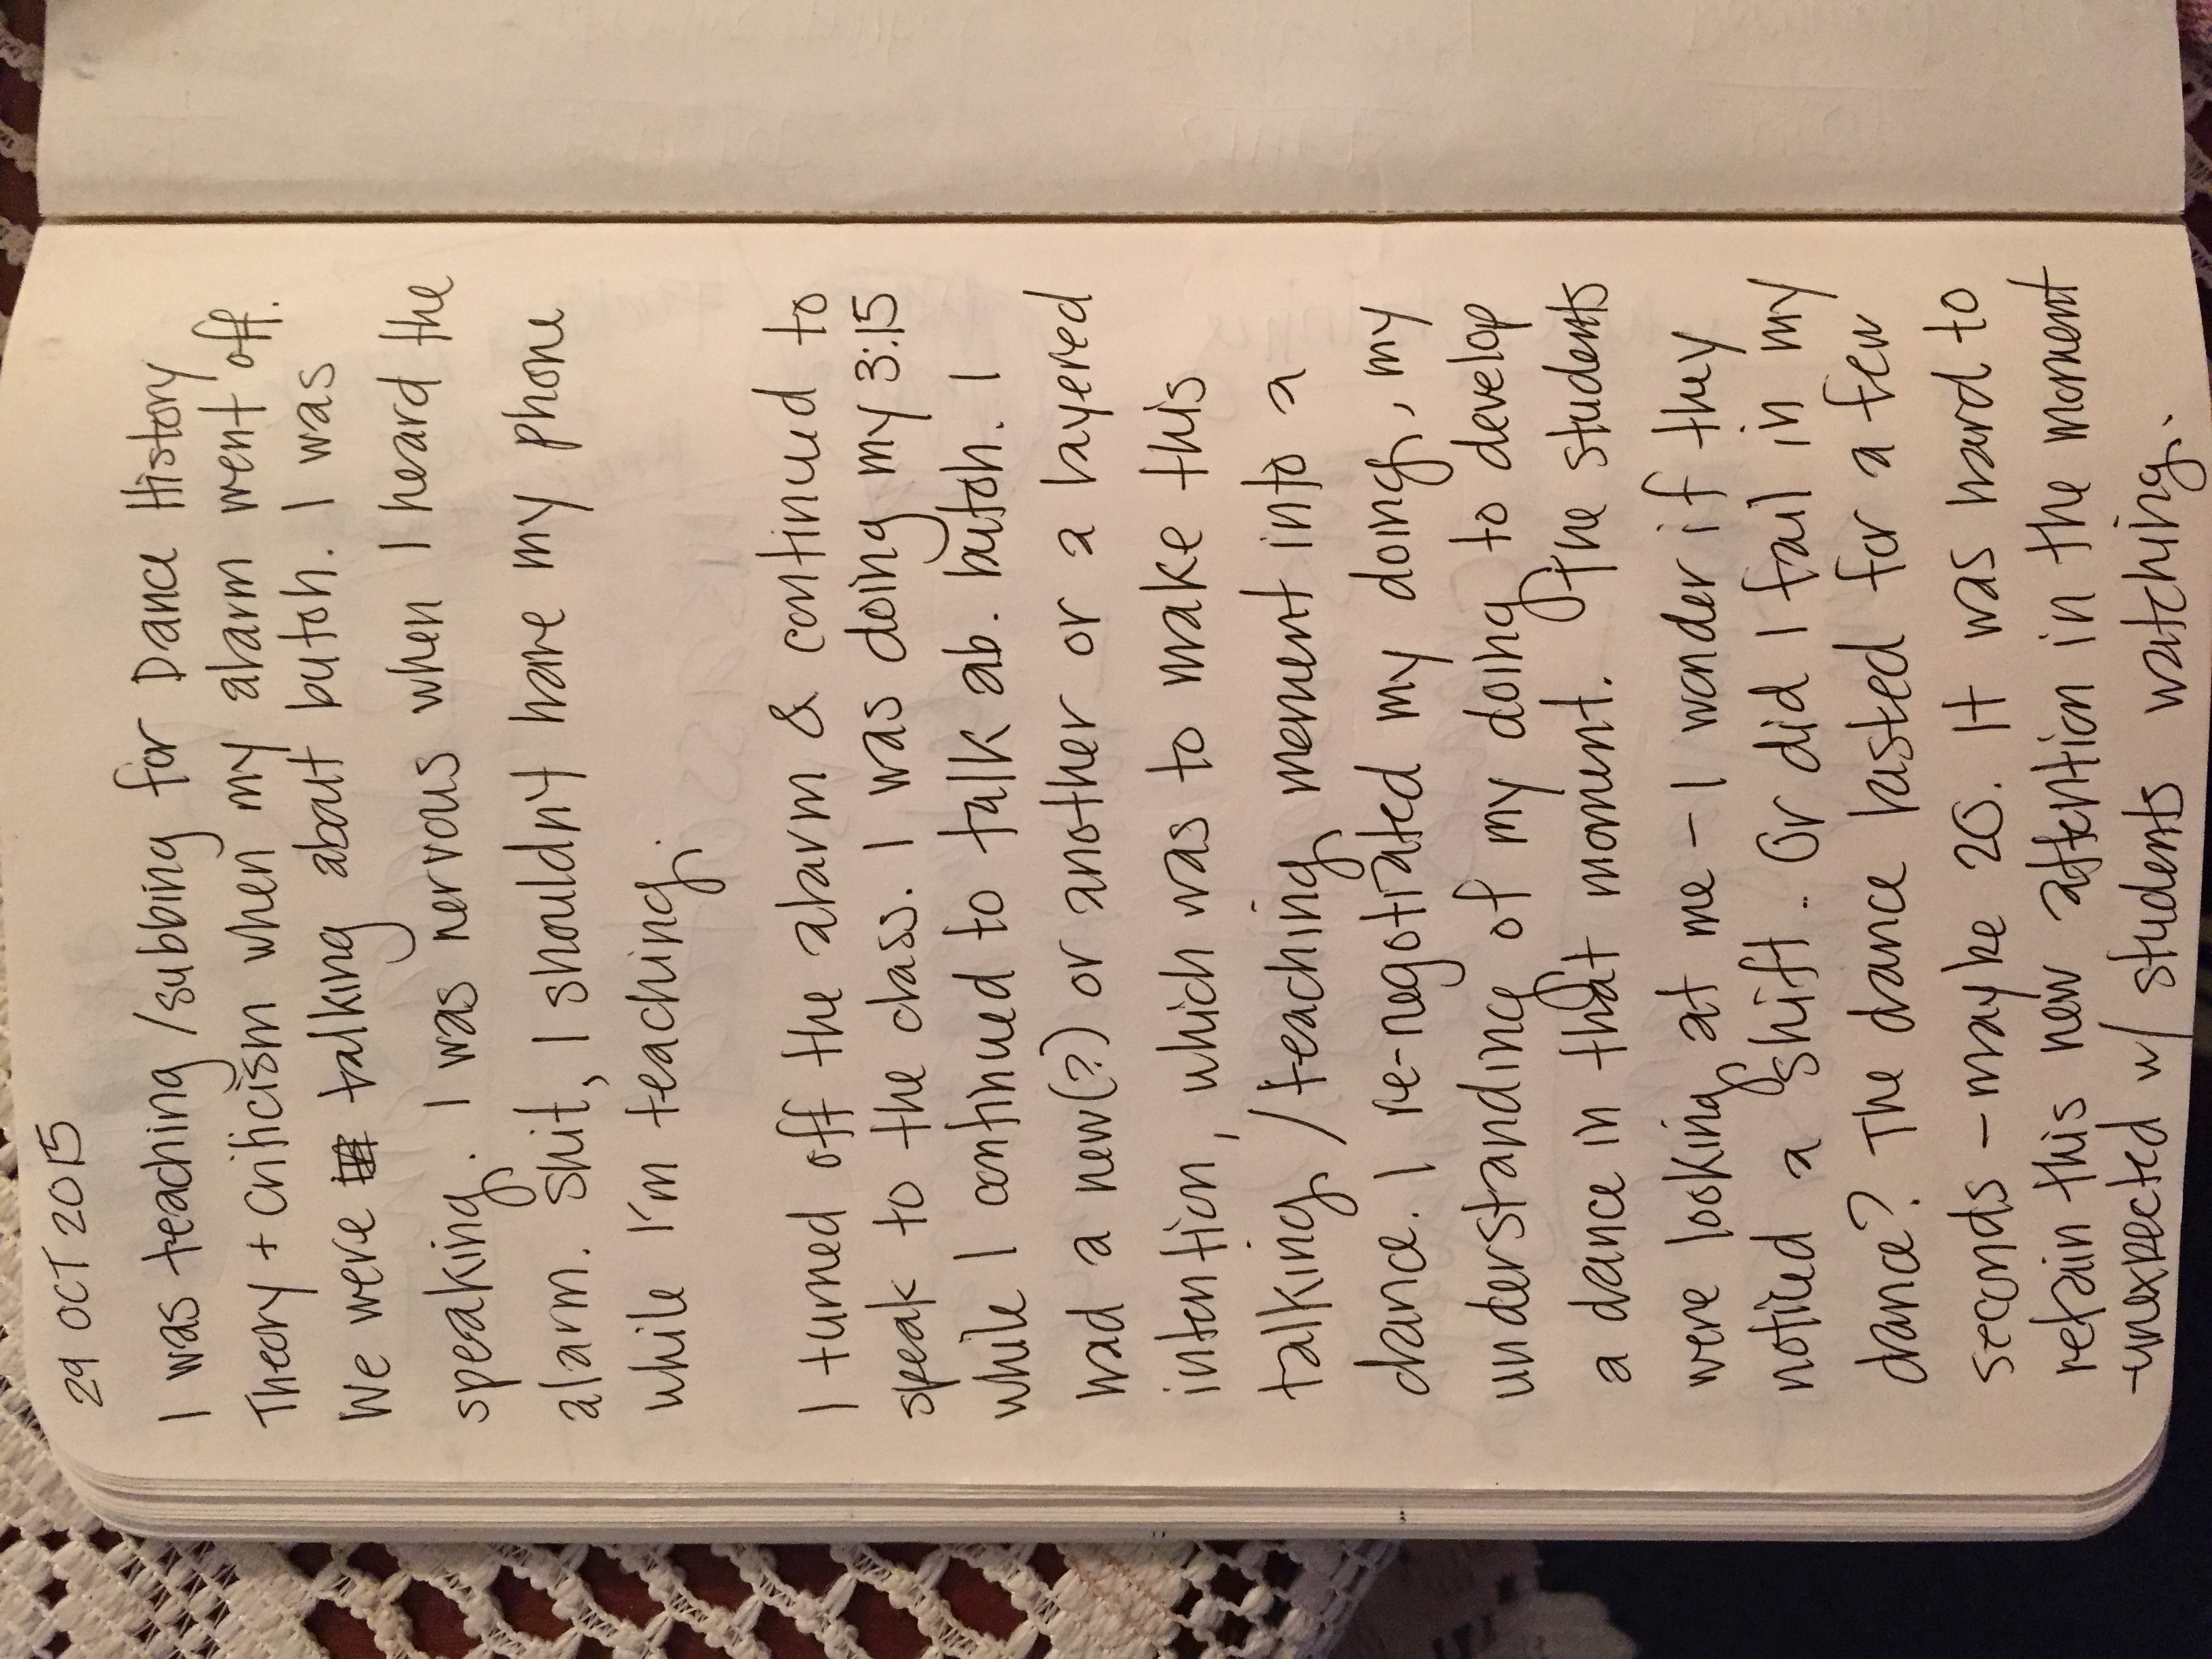 29 OCT 2015
I was teaching/subbing for Dance History
Theory + Criticism when my alarm went off.
We were talking about butoh. I was
speaking. I was nervous when I heard the
alarm. Shit, I shouldn't have my phone
while I'm teaching.
I turned off the alarm & continued to
speak to the class. I was doing my 3:15
while I continued to talk ab. butoh. I
had a new(?) or another or a layered
intention, which was to make this
talking/teaching moment into a
dance. I re-negotiated my doing, my
understanding of my doing to develop
a dance in that moment. The students
were looking at me - I wonder if they
noticed a shift. Or did I fail in my
dance? The dance lasted for a few
seconds - maybe 20. It was hard to
retain this new attention in the moment
-unexpected w/ students watching.